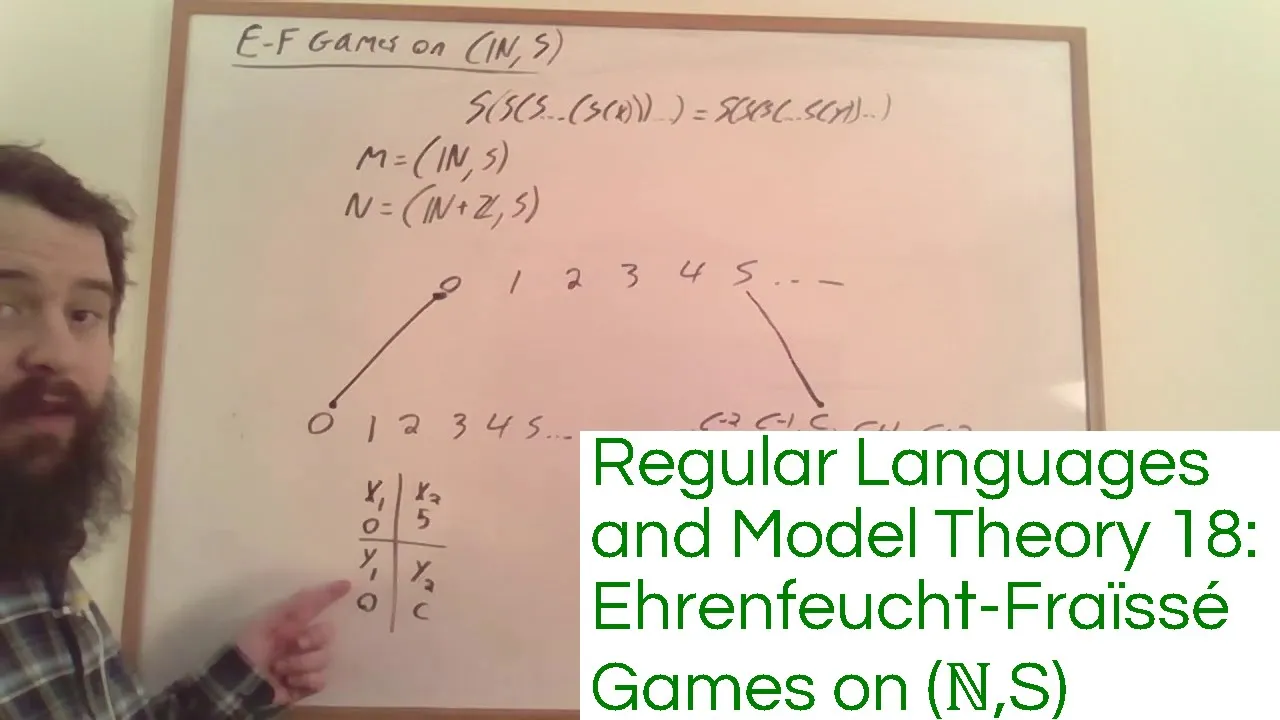 E-F Games on (ℕ, S)
S(S(S...(S(x)))...) = S(S(S(...S(x))...)
M = (ℕ, S)
N = (ℕ + ℤ, S)
0 1 2 3 4 5 ...
0 1 2 3 4 5... C-2 C-1 C
X₁ X₂
0 5
Y₁ Y₂
0 C
Regular Languages
and Model Theory 18:
Ehrenfeucht-Fraïssé
Games on (ℕ,S)